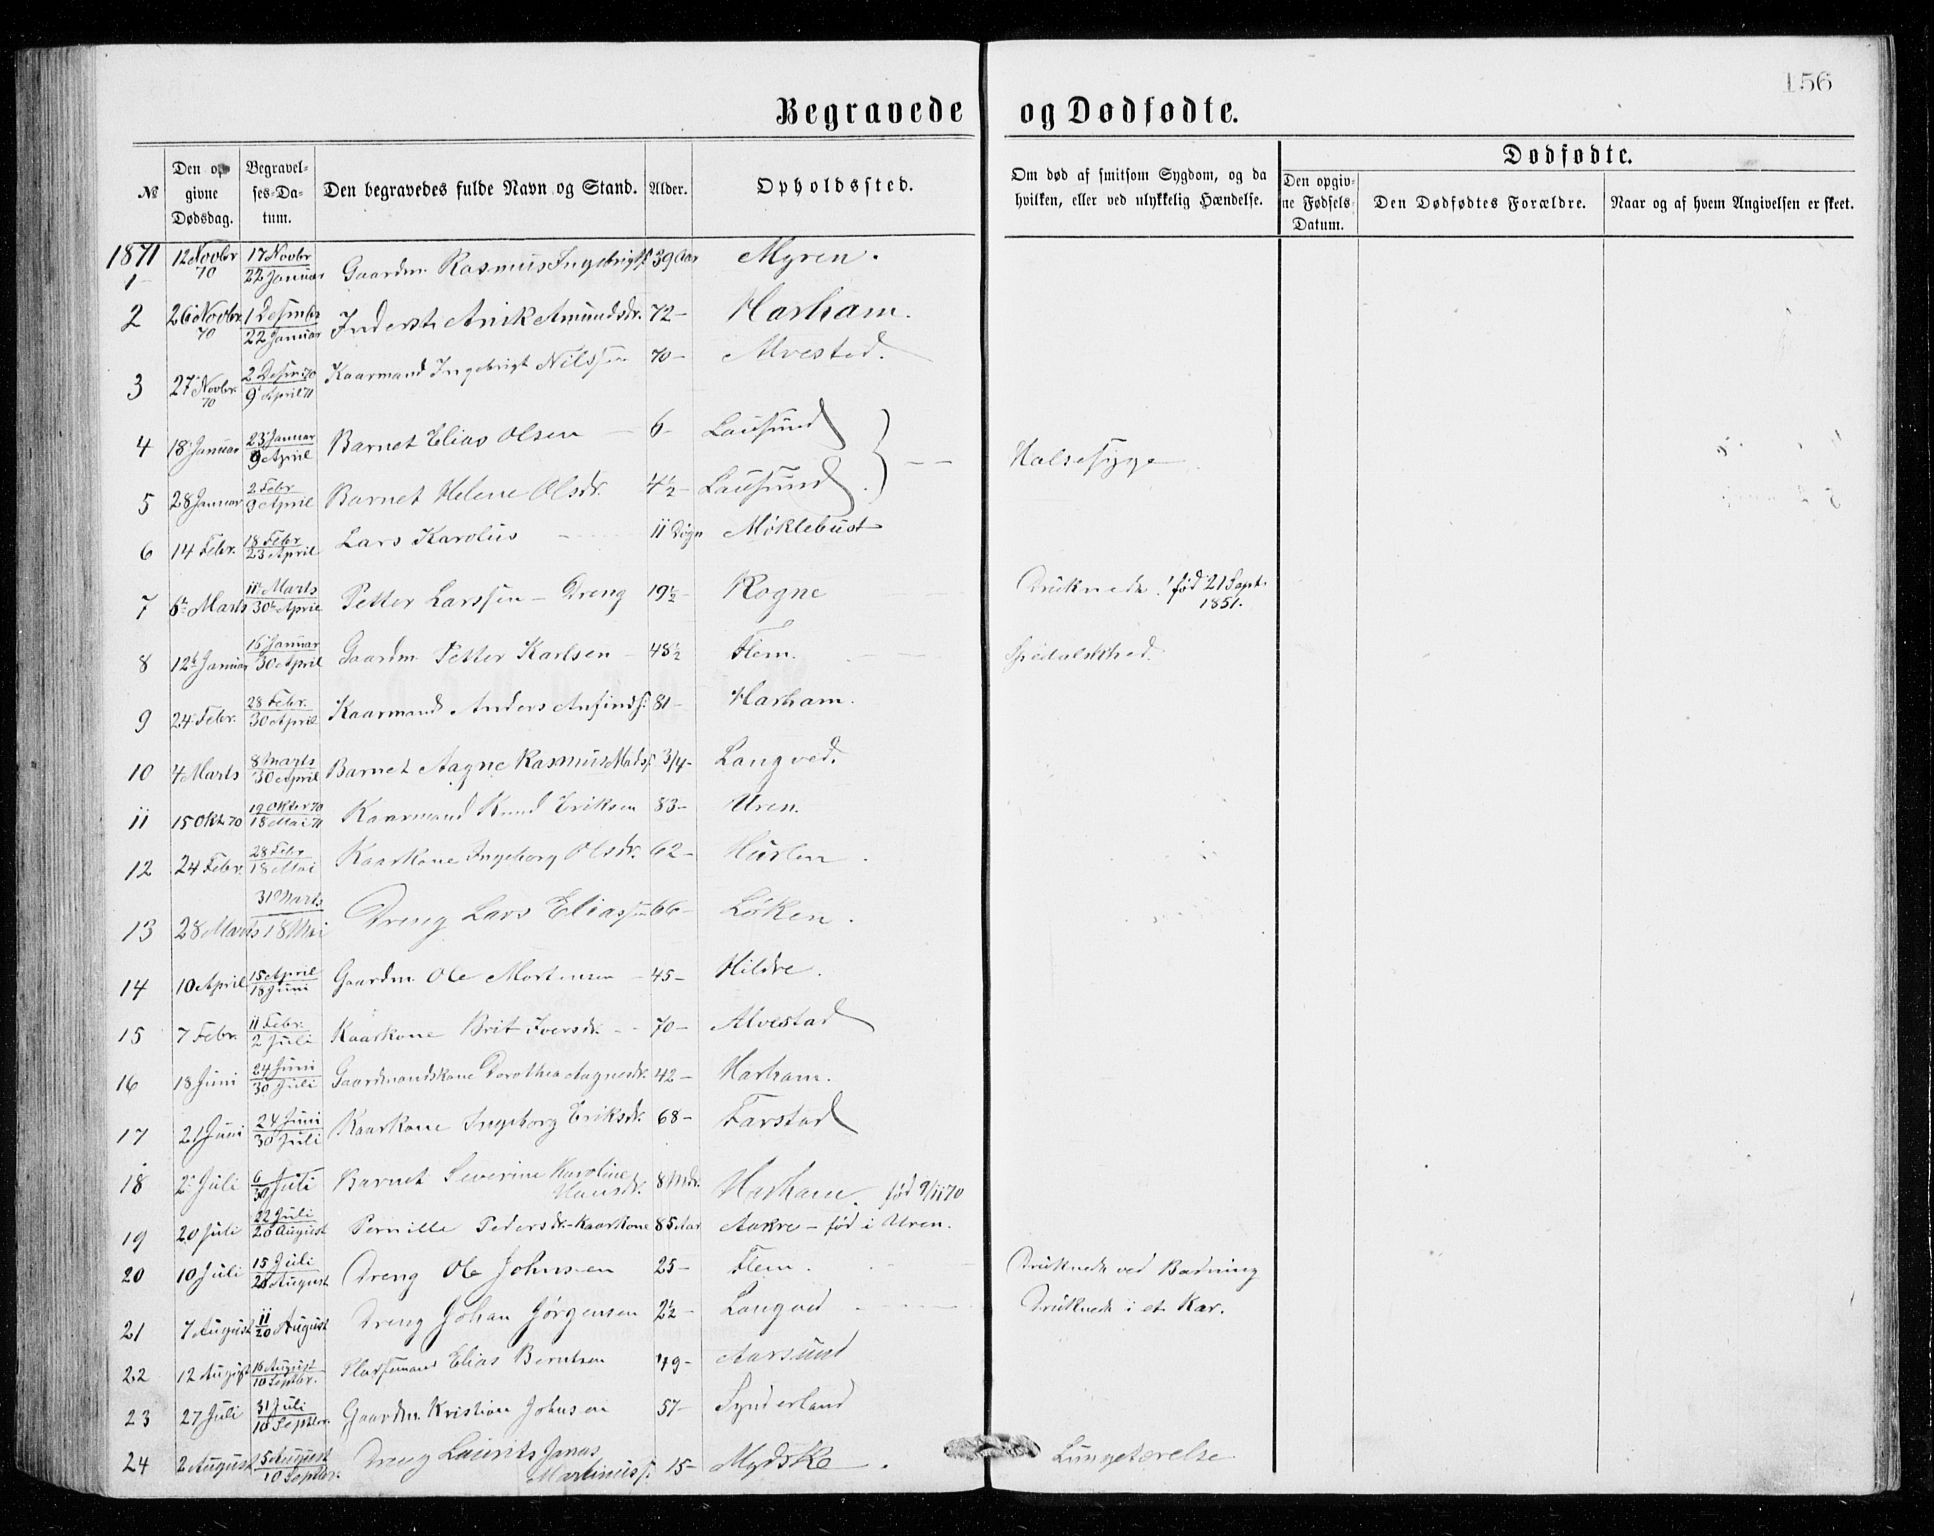 156
Begravede og Dødfødte.
№ Den opgivne Dødsdag. Begravelses-Datum. Den begravedes fulde Navn og Stand. Alder. Opholdssted. Om død af smitsom Sygdom, og da hvilken, eller ved ulykkelig Hændelse. Dødfødte.
Den opgivne Fødsels-Datum. Den Dødfødtes Forældre. Naar og af hvem Angivelsen er skeet.
1871
1 12 Novbr 70 17 Novbr 22 Januar Gaardm. Rasmus Ingebrigts. 39 Aar Myren.
2 26 Novbr. 70 1 Desmbr 22 Januar Inderst Anik Amundsdr. 72 - Harham.
3 27 Novbr. 70 2 Desm 70 9 April 71 Kaarmand Ingebrigt Nilssen 70 - Alvestad.
4 18 Januar 23 Januar 9 April Barnet Elias Olsen - 6 - Lausund
Halsesyge
5 28 Januar 2 Febr 9 April Barnet Helene Olsdr. 4½ - Lausund
6 14 Febr. 18 Febr 23 April Lars Karolus 11 Døgn Møklebust
7 6te Marts 11te Marts 30te April Petter Larssen - Dreng 19½ - Rogne Druknede! født 21 Sept. 1851.
8 12te Januar 16 Januar 30 April Gaardm. Petter Karlsen - 48½ Flem. Spedalskhed.
9 24 Febr. 28 Febr. 30 April Kaarmand Anders Anfinds. 81 - Harham.
10 4 Marts 8 Marts 30 April Barnet Aagne Rasmus Mads. 3/4 - Langved.
11 15 Okt 70 19 Oktbr 70 18 Mai 71 Kaarmand Knud Eriksen 83 - Uren.
12 24 Febr. 28 Febr 18 Mai Kaarkone Ingeborg Olsdr. 62 - Hurlen
13 28 Marts 31 Marts 18 Mai Dreng Lars Eliassen 66 - Løken.
14 10 April 15 April 18 Juni Gaardm. Ole Mortensen - 45 - Hildre.
15 7 Febr. 11 Febr. 2 Juli Kaarkone Brit Iversdr. - - 70 - Alvestad
16 18 Juni 24 Juni 30 Juli Gaardmandskone Dorothea Aagnesdr. 42 - Harham.
17 21 Juni 24 Juni 30 Juli Kaarkone Ingeborg Eriksdr. 68 - Farstad
18 2 Juli 6/30 Juli Barnet Severine Karoline Hansdr. 8 Mdr. Harham. født 9/11 70
19 20 Juli 22 Juli 20 August Pernille Pedersdr. - Kaarkone 85 Aar Aakre - født i Uren.
20 10 Juli 15 Juli 20 August Dreng Ole Johnsen 25 - Flem. Druknede ved Badning
21 7 August 11/20 August Dreng Johan Jørgensen 2½ - Langved Druknede i et Kar.
22 12 August 16 August 10 Septbr. Pladsemand Elias Berntsen 49 - Aarsund
23 27 Juli 31 Juli 10 Septbr. Gaardm. Kristian Johnsen 57 - Synderland
24 2 August 5 August 10 Septbr. Dreng Laurits Janas Martinuss. 15 - Mydske. Lungetærelse